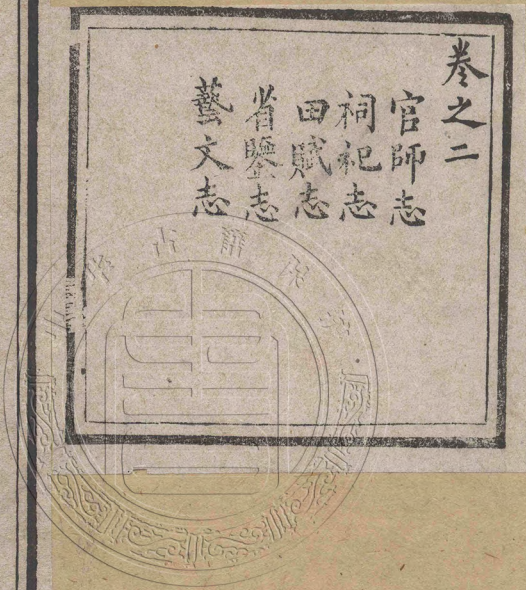 卷之二
官師志
祠祀志
田賦志
省鑒志
藝文志